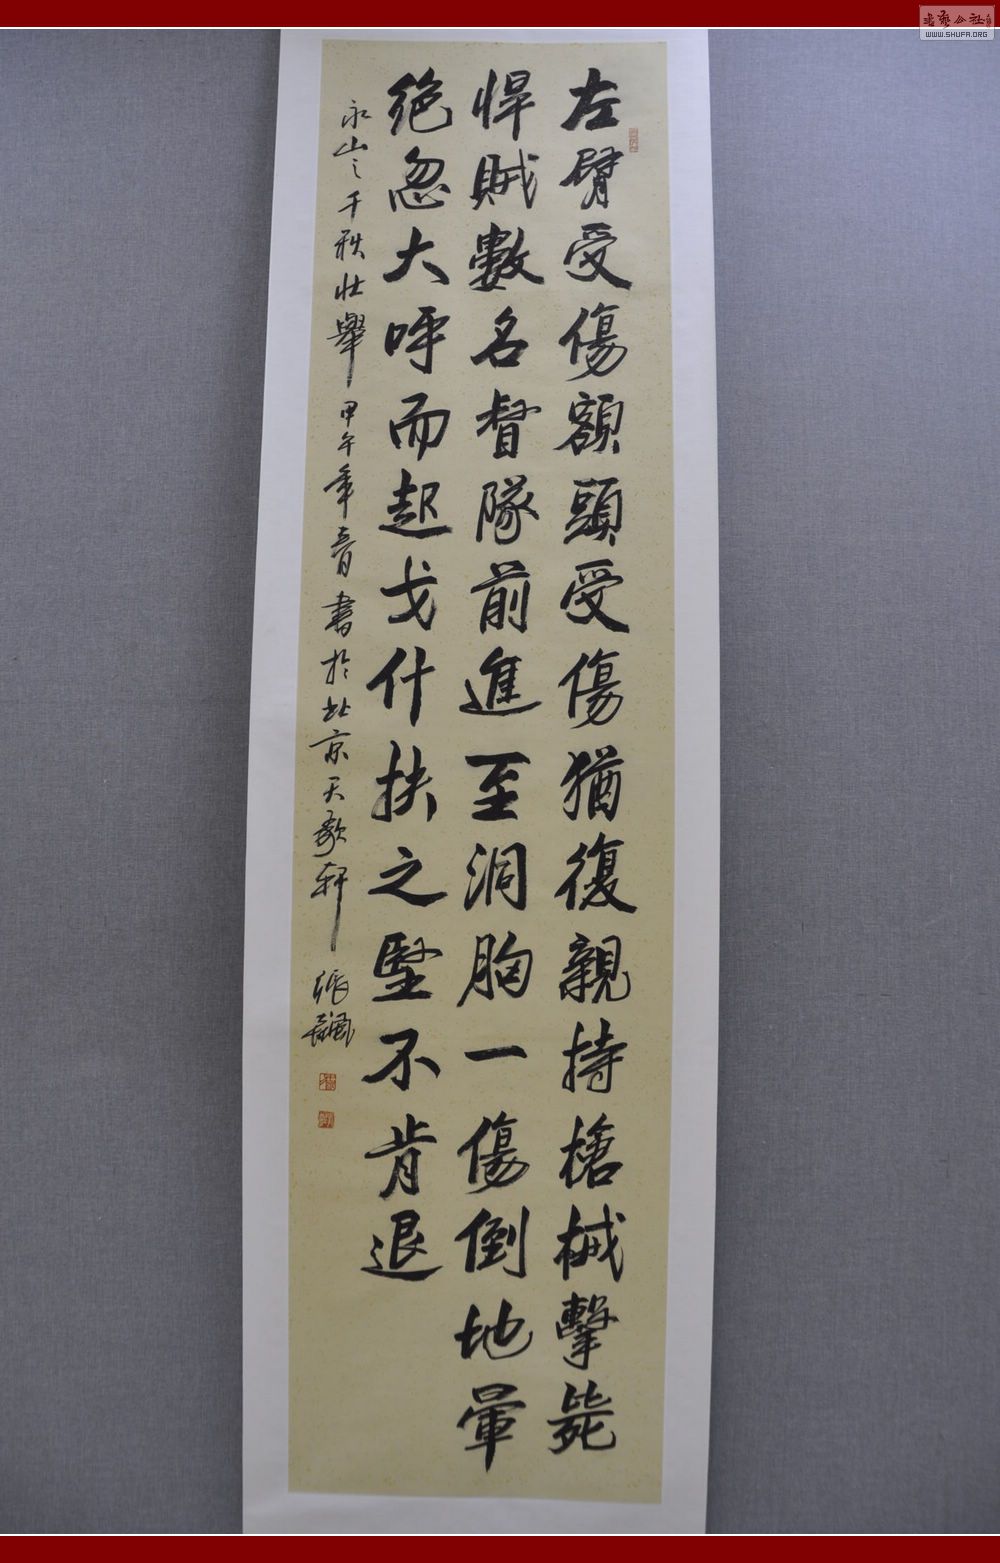 左臂受傷額頭受傷猶復親持槍械擊毙
悍賊數名督隊前進至洞胸一傷倒地暈
绝忽大呼而起戈什扶之堅不肯退
永山之千秋壯舉甲午年春書於北京天歌軒張飚
書藝公社
WWW.SHUFA.ORG